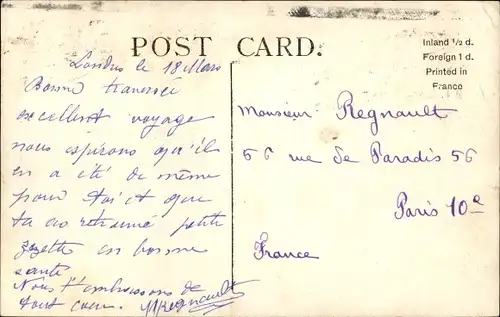 POST CARD.
Inland 1/2 d.
Foreign 1 d.
Printed in
Franco
Londres le 18 Mars
Bonne traversée
excellent voyage
nous espérons qu'il
en a été de même
pour toi et que
tu as retrouvé petite
en bonne
santé
Nous t'embrassons de
tout coeur. MRegnault
Monsieur Regnault
56 rue de Paradis 56
Paris 10e
France